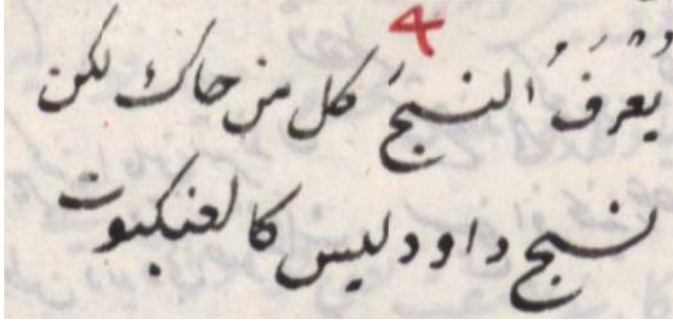 4
يُعْرَفُ النسجَ كل من حاك لكن
نسج داود ليس كالعنكبوت